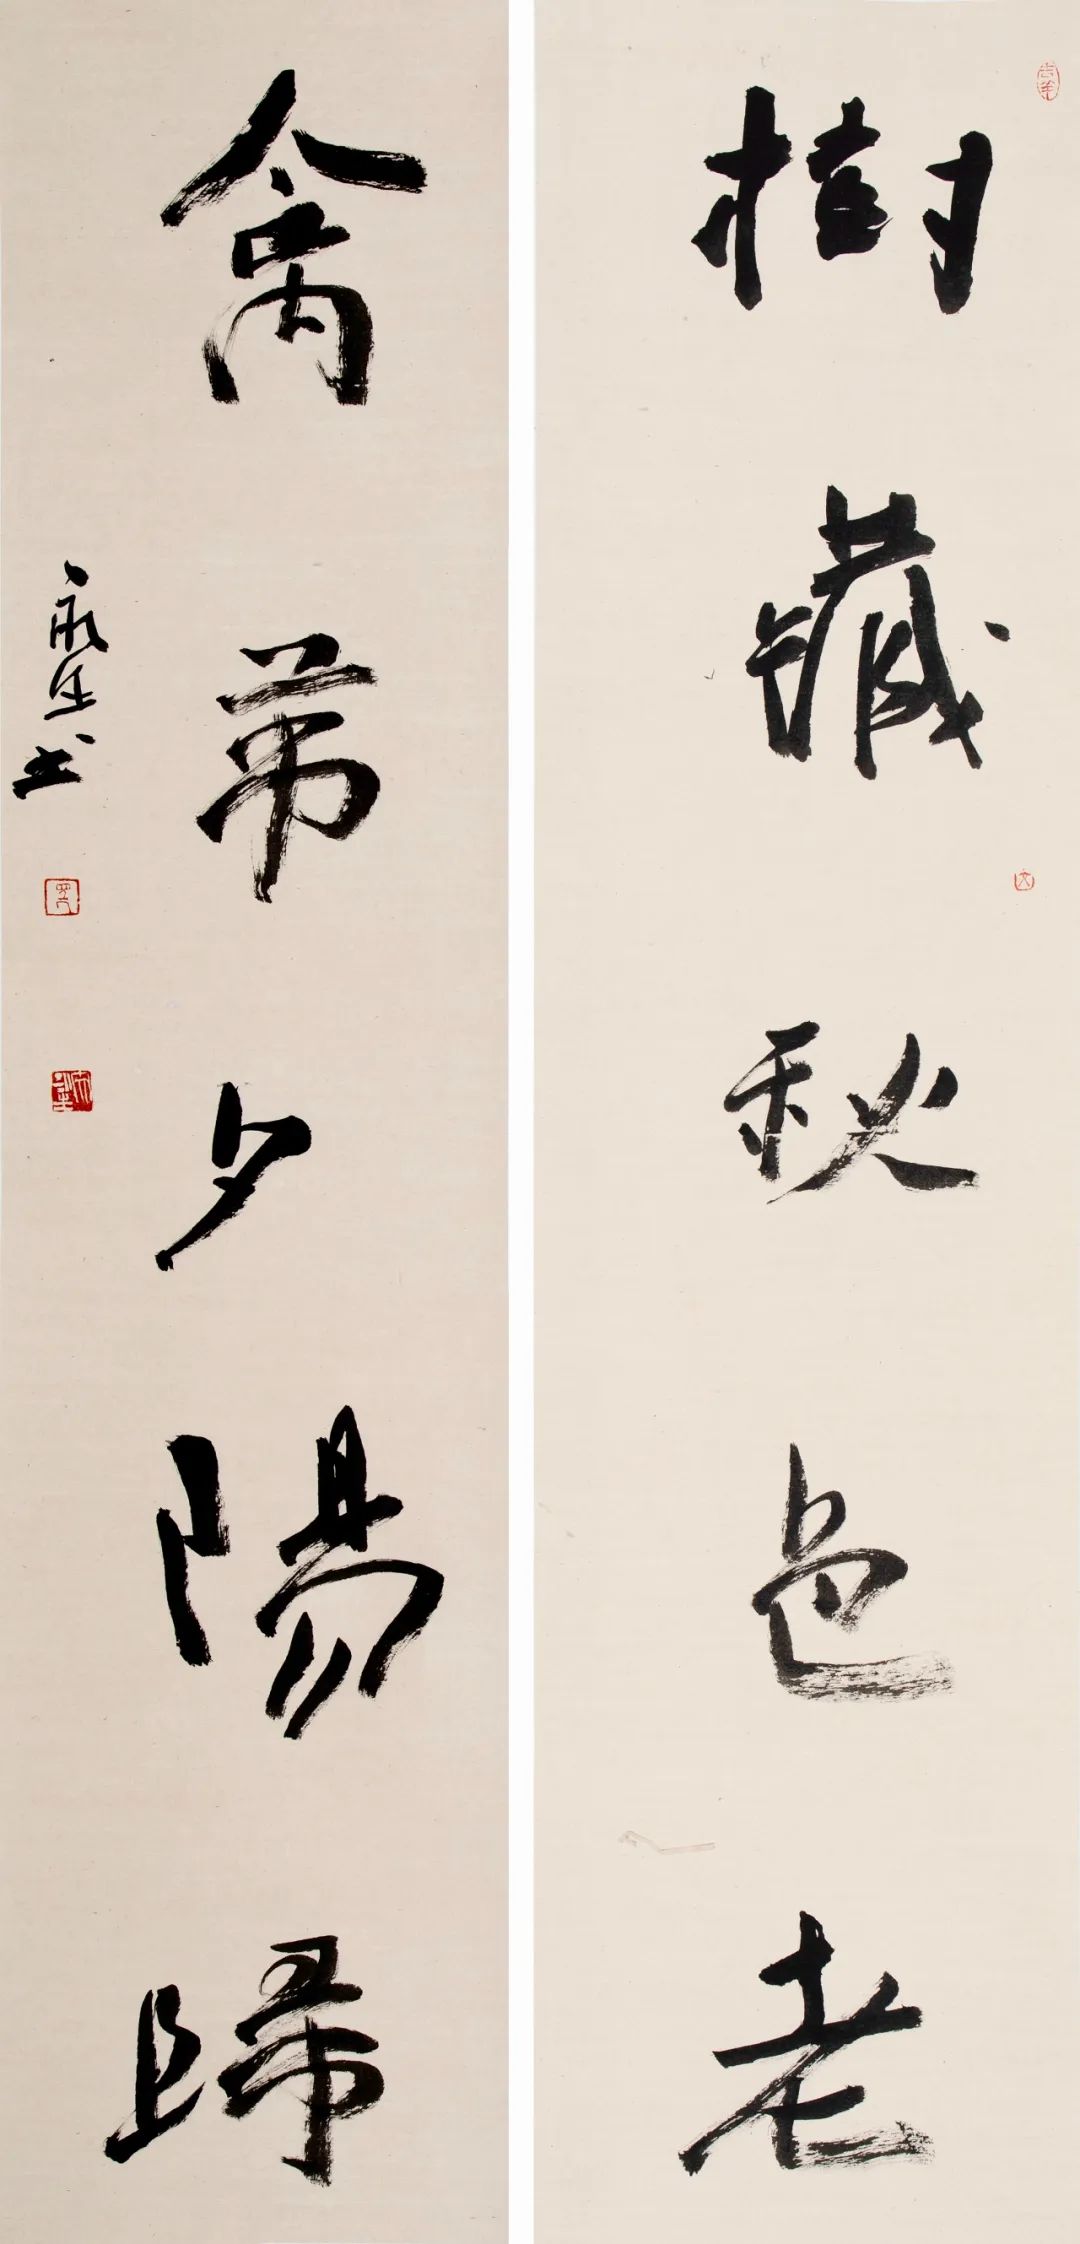 樹藏秋色老
禽帶夕陽歸
永生書